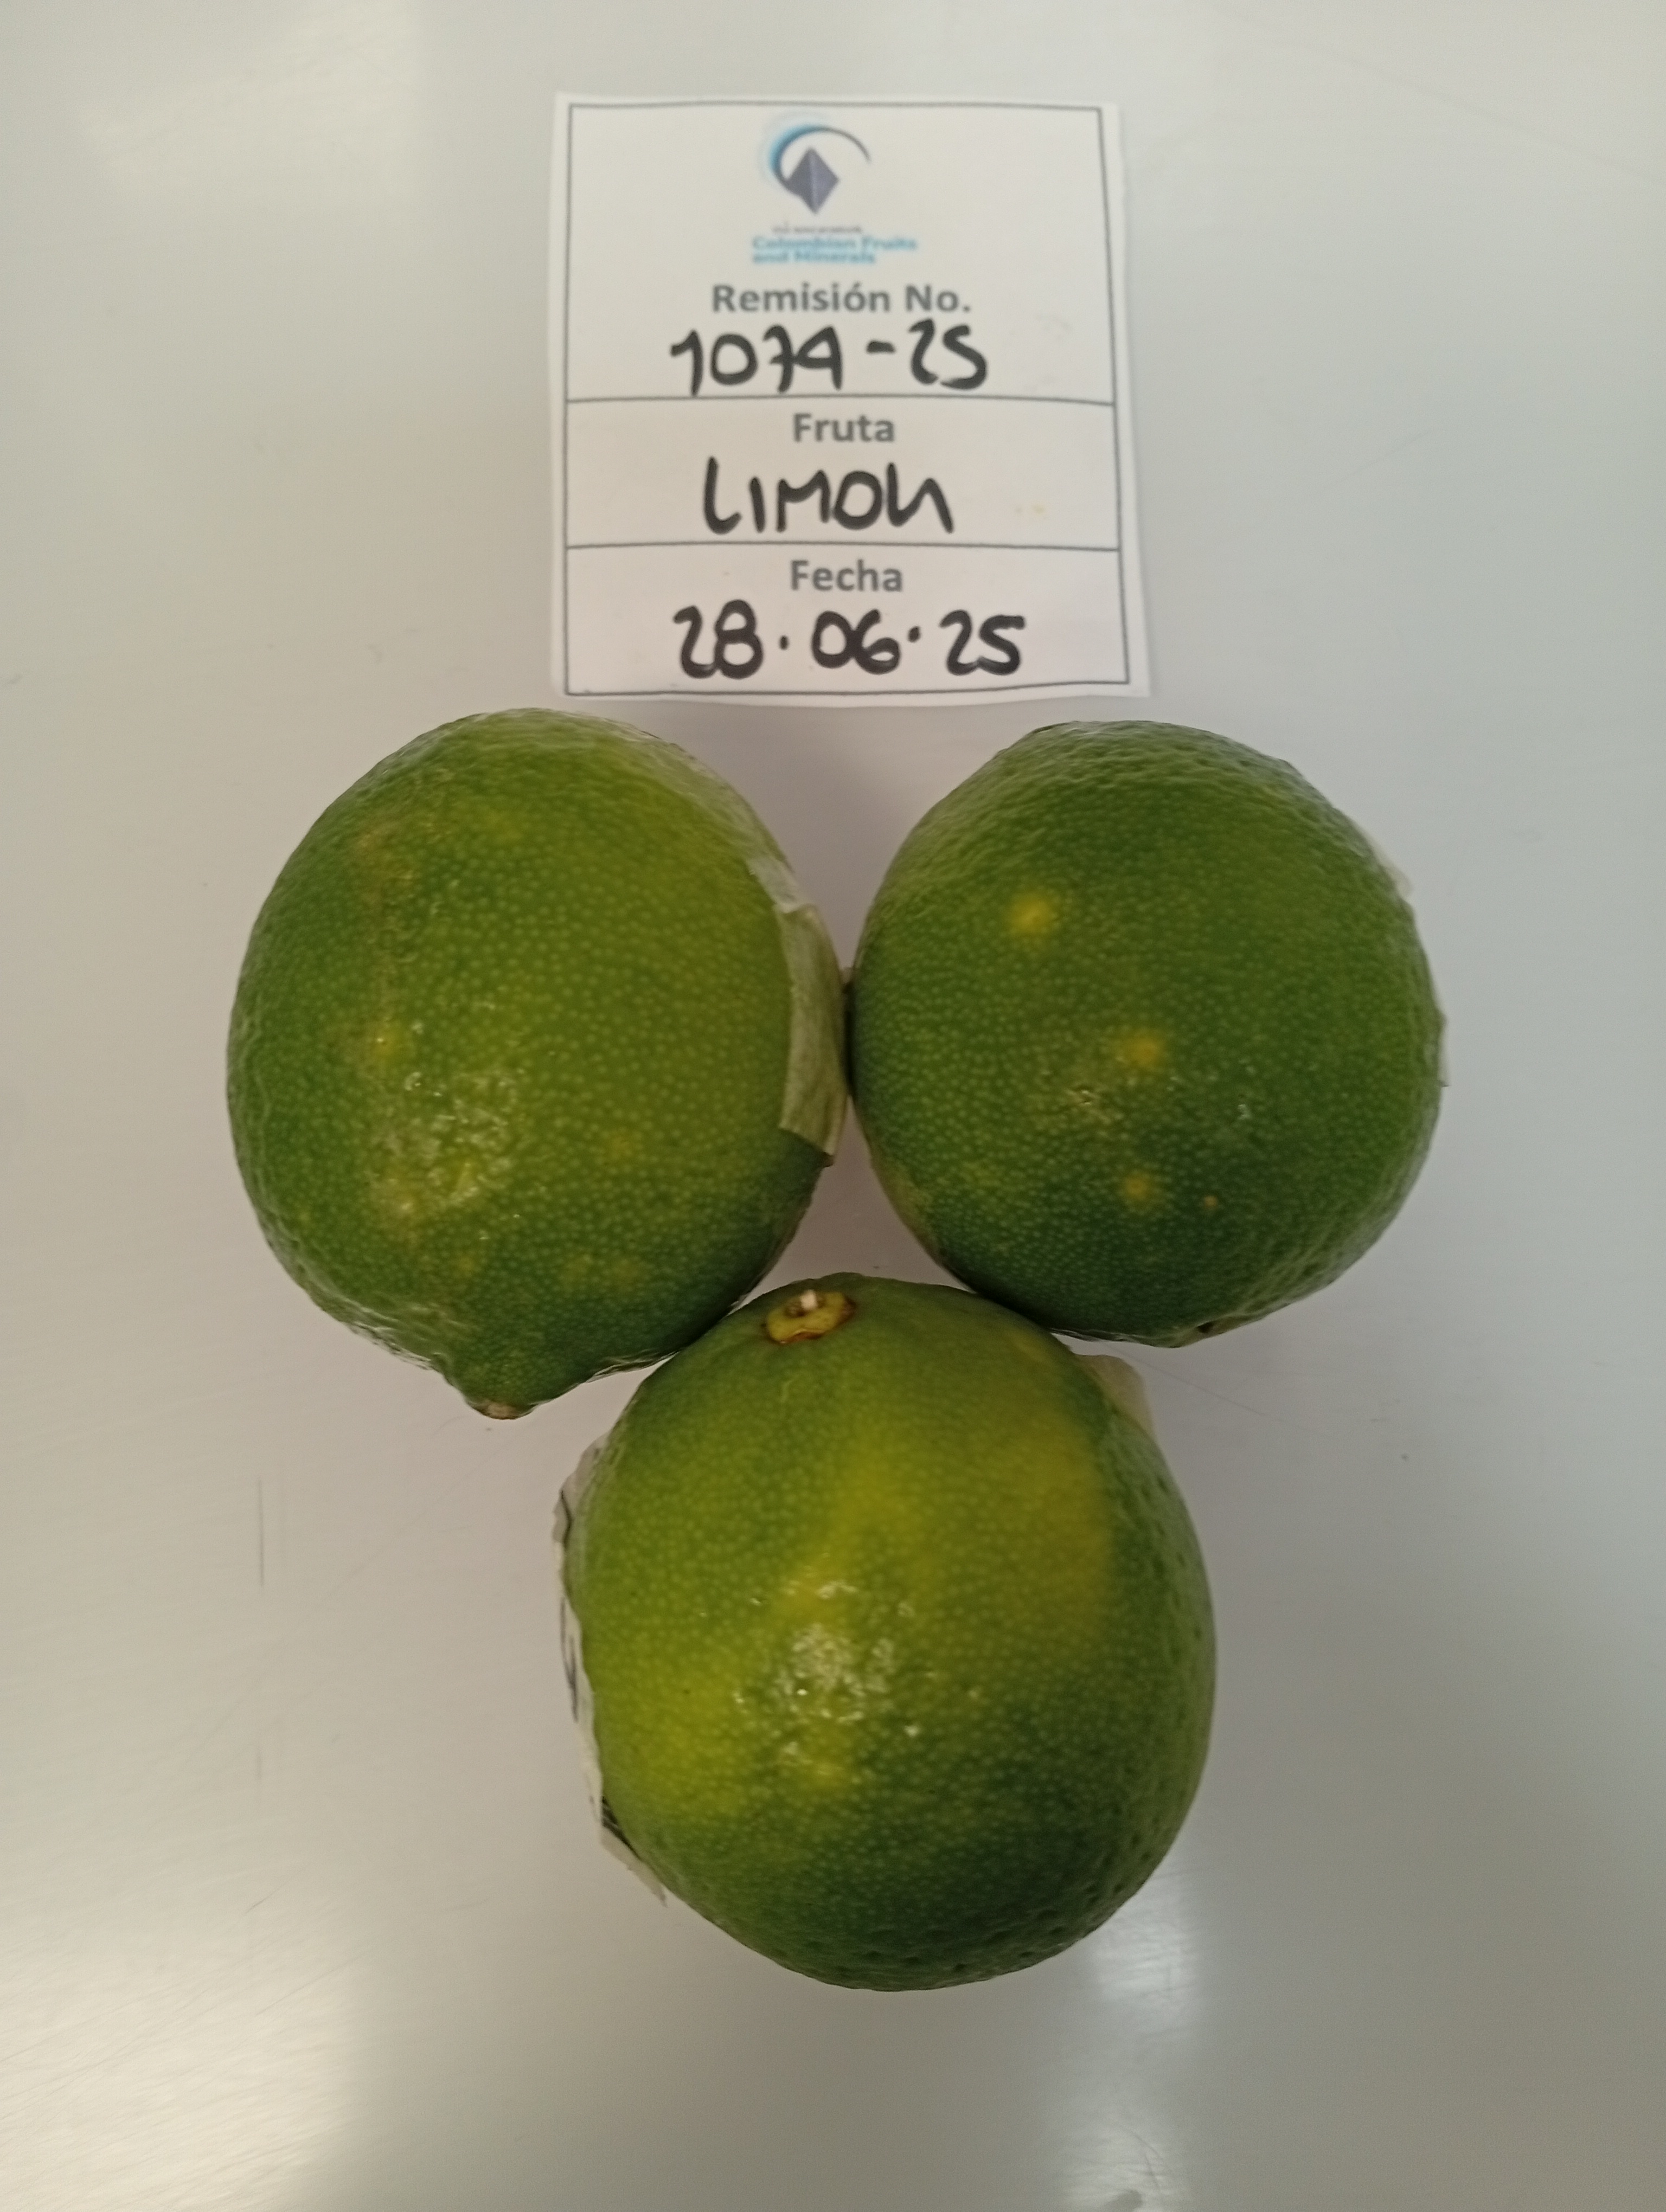 Colombian Fruits
and Minerals
Remisión No.
1079-25
Fruta
LIMON
Fecha
28·06·25